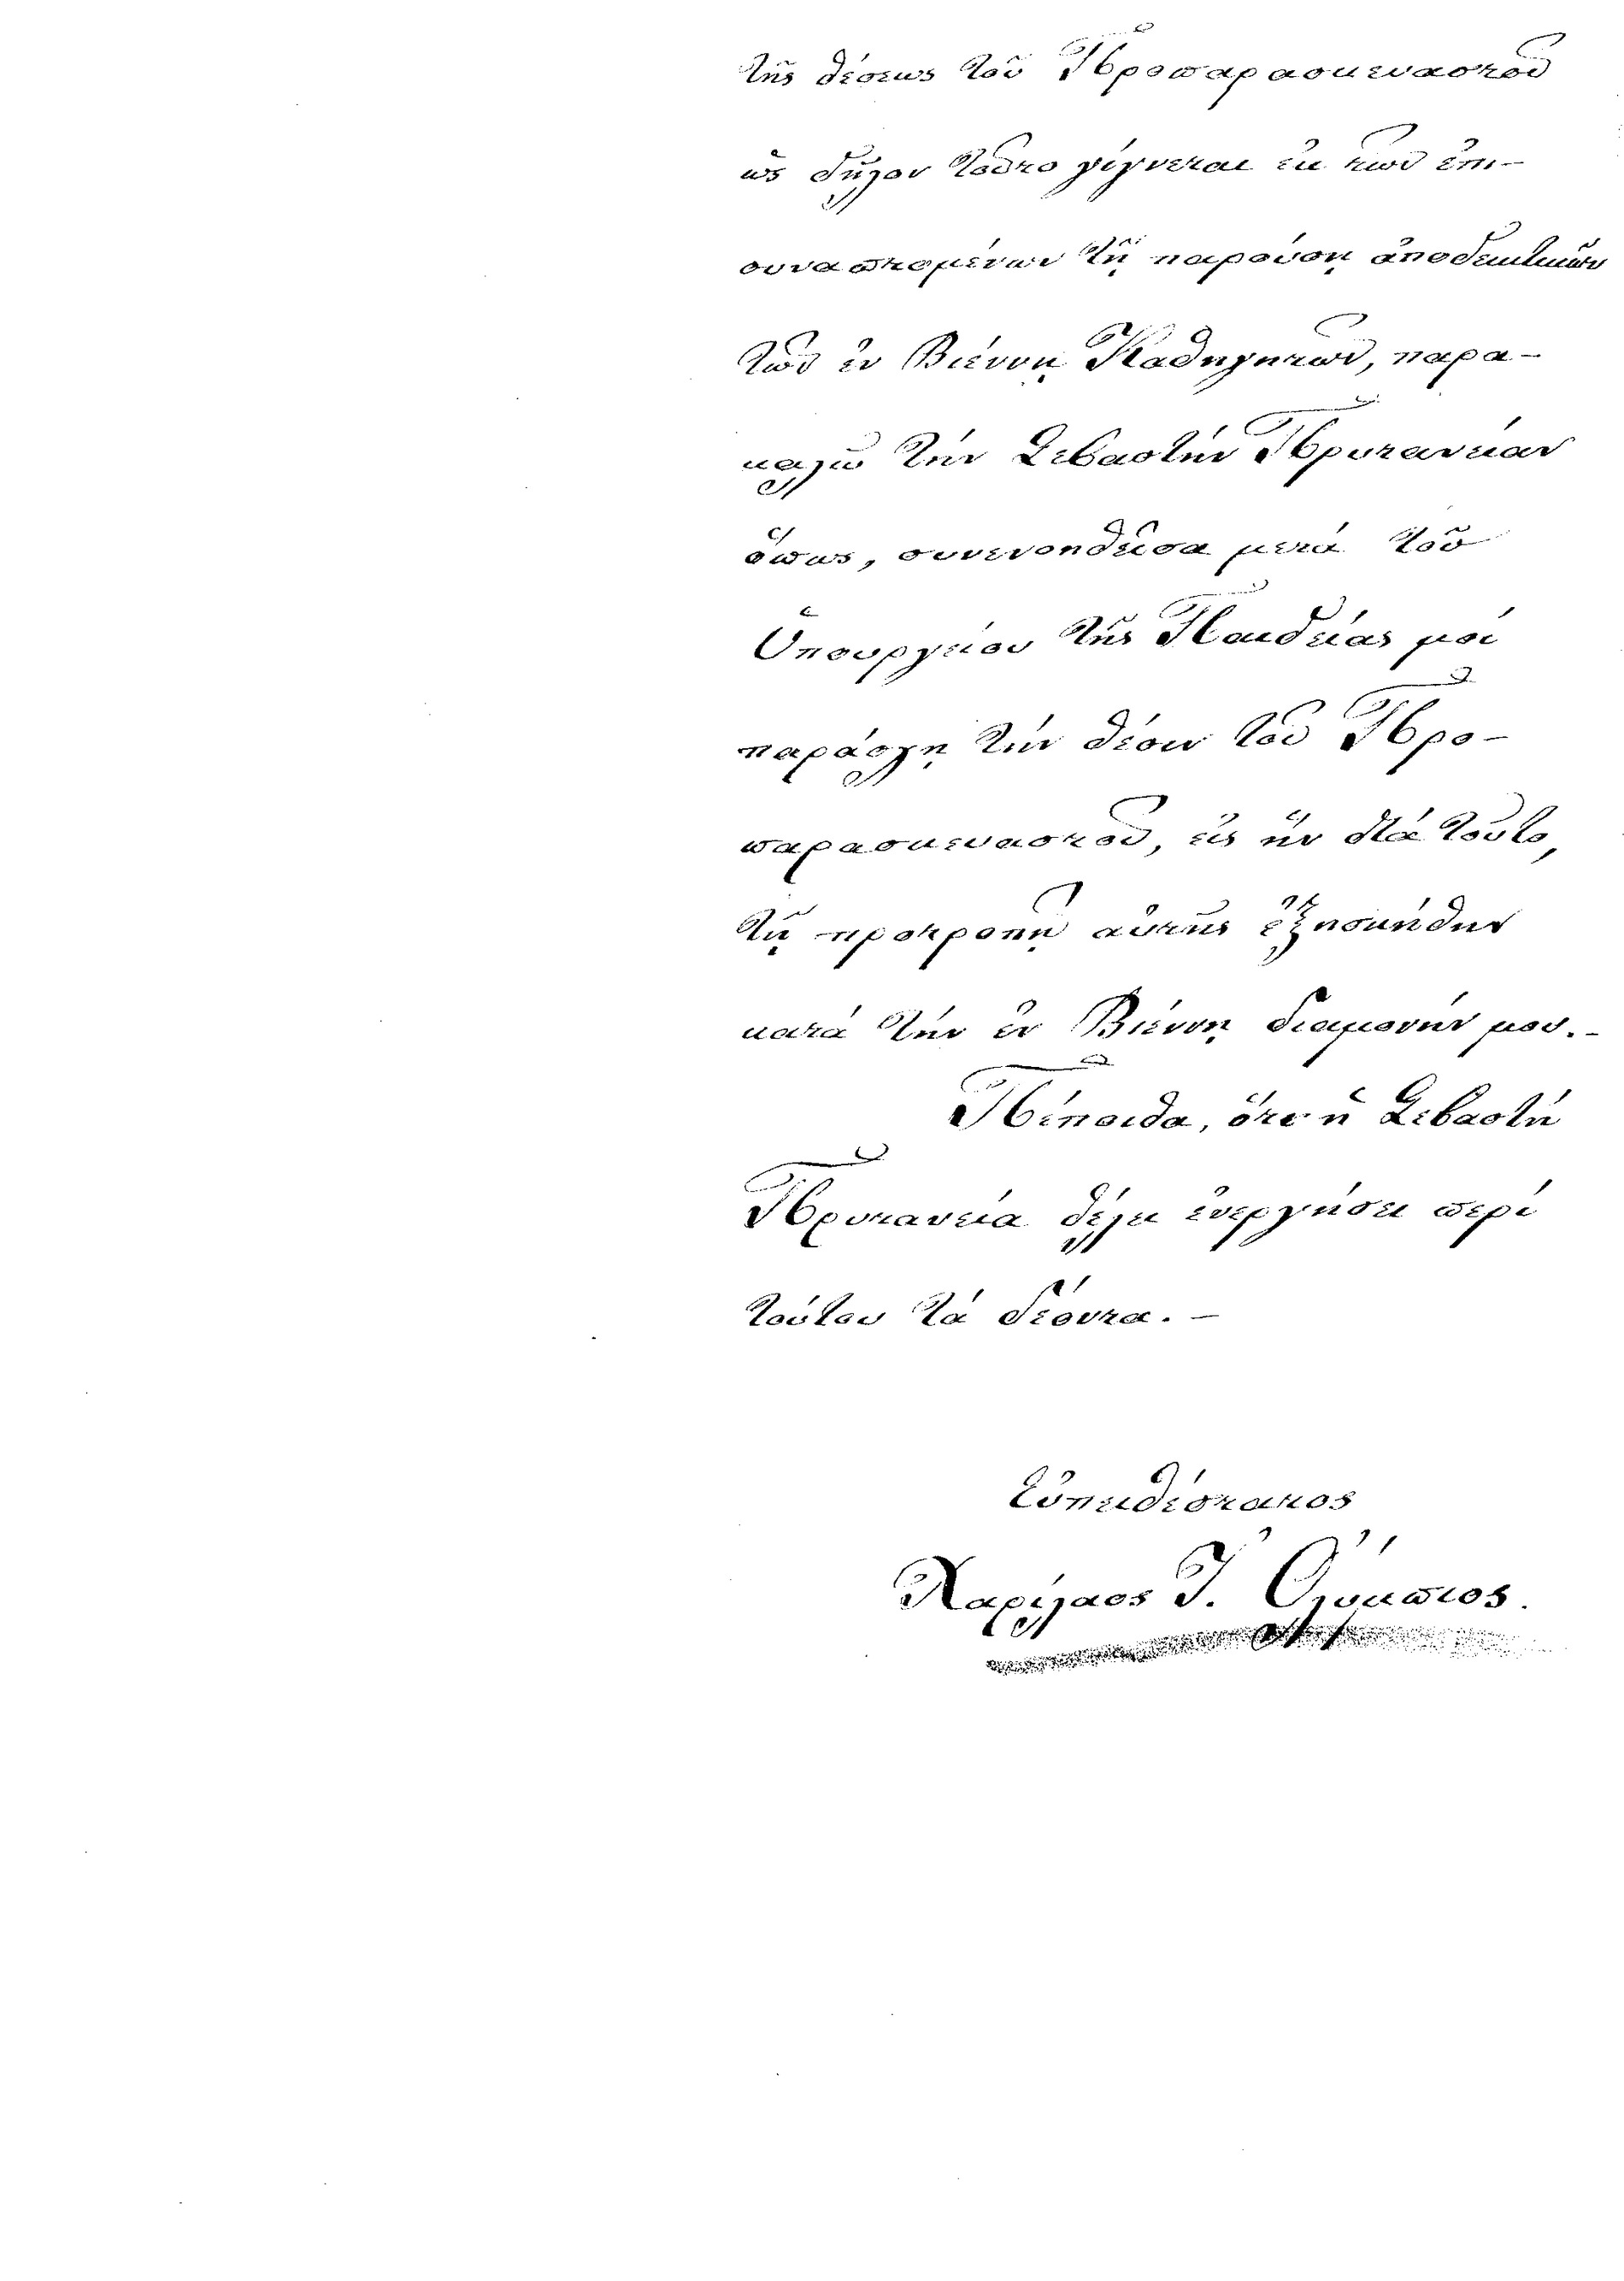 τῆς θέσεως τοῦ Προπαρασκευαστοῦ
ὡς δῆλον τοῦτο γίγνεται ἐκ τῶν ἐπι-
συναπτομένων τῇ παρούσῃ ἀποδεικτικῶν
τῶν ἐν Βιέννῃ Καθηγητῶν, παρα-
καλῶ τὴν Σεβαστὴν Πρυτανείαν
ὅπως, συνεννοηθεῖσα μετὰ τοῦ
Ὑπουργείου τῆς Παιδείας μοὶ
παράσχῃ τὴν θέσιν τοῦ Προ-
παρασκευαστοῦ, εἰς ἣν διὰ τοῦτο,
τῇ προτροπῇ αὐτῆς ἐξησκήθην
κατὰ τὴν ἐν Βιέννῃ διαμονήν μου.-
Πέποιθα, ὅτι ἡ Σεβαστὴ
Πρυτανεία θέλει ἐνεργήσει περὶ
τούτου τὰ δέοντα. -
Εὐπειθέστατος
Χαρίλαος Ἰ. Ὀλύμπιος.